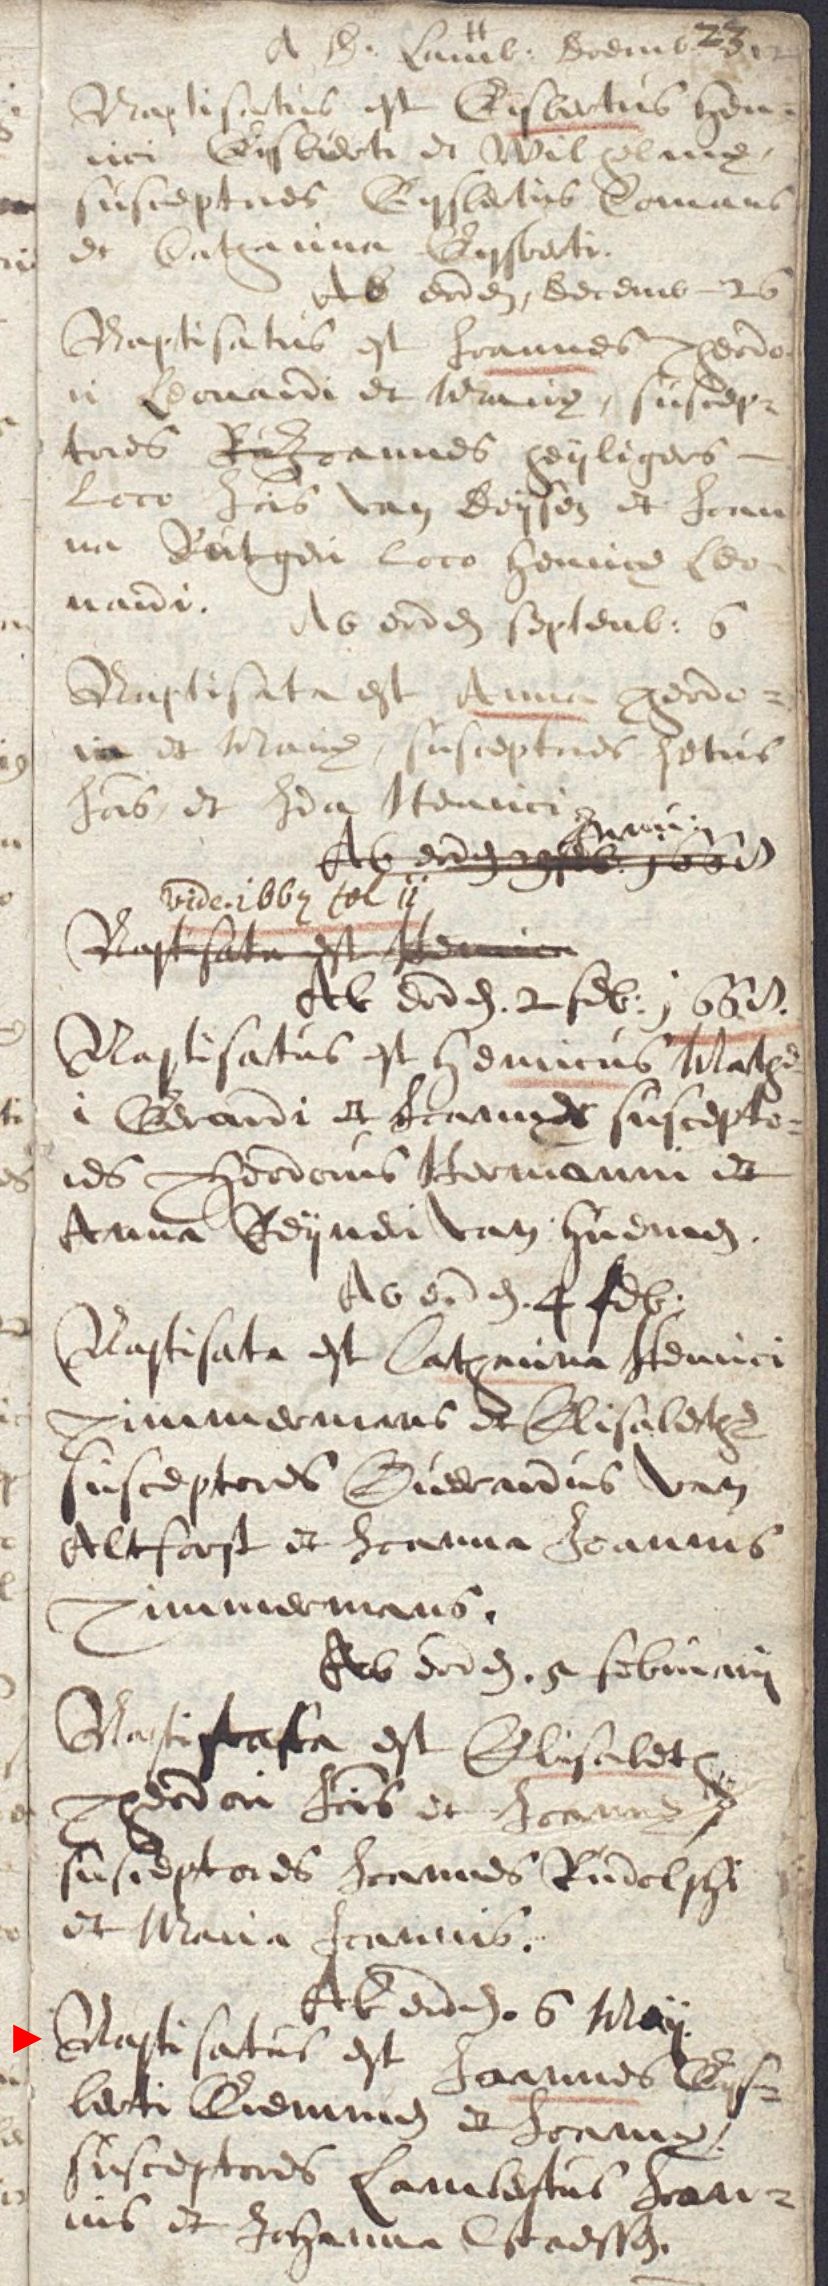 A D. Lamb: Decemb. 23
Baptisatus est Gisbertus Hen-
rici Gysberti et Wilhelmæ,
susceptores Gysbertus Comans
et Catharina Gysberti.
Ab eodem, Decemb 26
Baptisatus est Joannes Theodo-
ri Leonardi et Mariæ, suscep-
tores Joannes Heyligers
loco Jois van Beysen et Joan
na Rutgeri loco Henricæ Leo
nardi.
Ab eodem Septemb: 6
Baptisata est Anna Theodo-
ri et Mariæ, susceptores Petrus
Jois, et Ida Henrici
Ab eodem
vide 1667 fol ii
Baptisata est Henrica
Ab eodem. 2 feb: 1668.
Baptisatus est Henricus Mathi-
i Gerardi et Joannæ suscepto-
res Theodorus Hermanni et
Anna Reyneri van Huenen.
Ab eodem. 4 feb:
Baptisata est Catharina Henrici
Timmermans et Elisabethæ
susceptores Everardus van
Altforst et Joanna Joannis
Timmermans.
Ab eodem. 5 februarij
Baptisata est Elisabeth
Theodori Jois et Joannæ
susceptores Joannes Rudolphi
et Maria Joannis.
Ab eodem. 6 Maij.
Baptisatus est Joannes Gys-
berti et Joannæ,
susceptores Lambertus Joan-
nis et Johanna